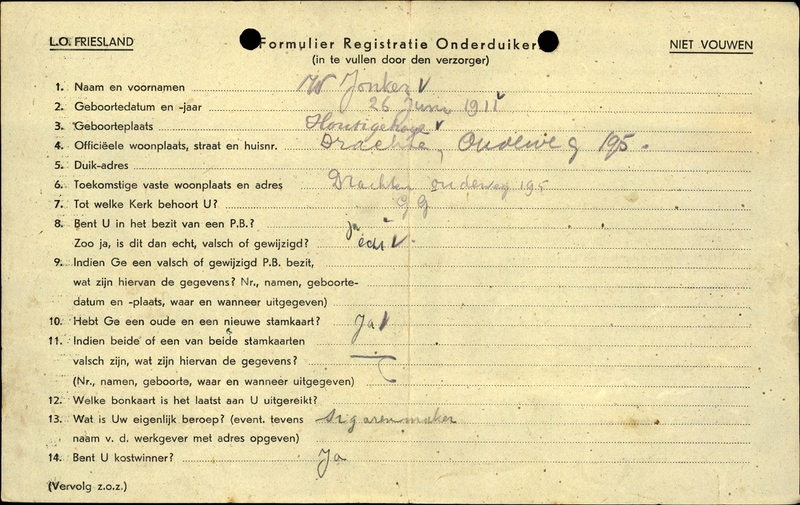 L.O. FRIESLAND
Formulier Registratie Onderduiker
NIET VOUWEN
(in te vullen door den verzorger)
1. Naam en voornamen W Jonker
2. Geboortedatum en -jaar 26 Juni 1911
3. Geboorteplaats
4. Officiëele woonplaats, straat en huisnr. Drachten, Oudeweg 195.
5. Duik-adres
6. Toekomstige vaste woonplaats en adres Drachten oudeweg 195
7. Tot welke Kerk behoort U? GG
8. Bent U in het bezit van een P.B.? ja
Zoo ja, is dit dan echt, valsch of gewijzigd? echt
9. Indien Ge een valsch of gewijzigd P.B. bezit,
wat zijn hiervan de gegevens? Nr., namen, geboorte-
datum en -plaats, waar en wanneer uitgegeven)
10. Hebt Ge een oude en een nieuwe stamkaart? Ja
11. Indien beide of een van beide stamkaarten
valsch zijn, wat zijn hiervan de gegevens?
(Nr., namen, geboorte, waar en wanneer uitgegeven)
12. Welke bonkaart is het laatst aan U uitgereikt?
13. Wat is Uw eigenlijk beroep? (event. tevens sigarenmaker
naam v. d. werkgever met adres opgeven)
14. Bent U kostwinner? Ja
(Vervolg z.o.z.)